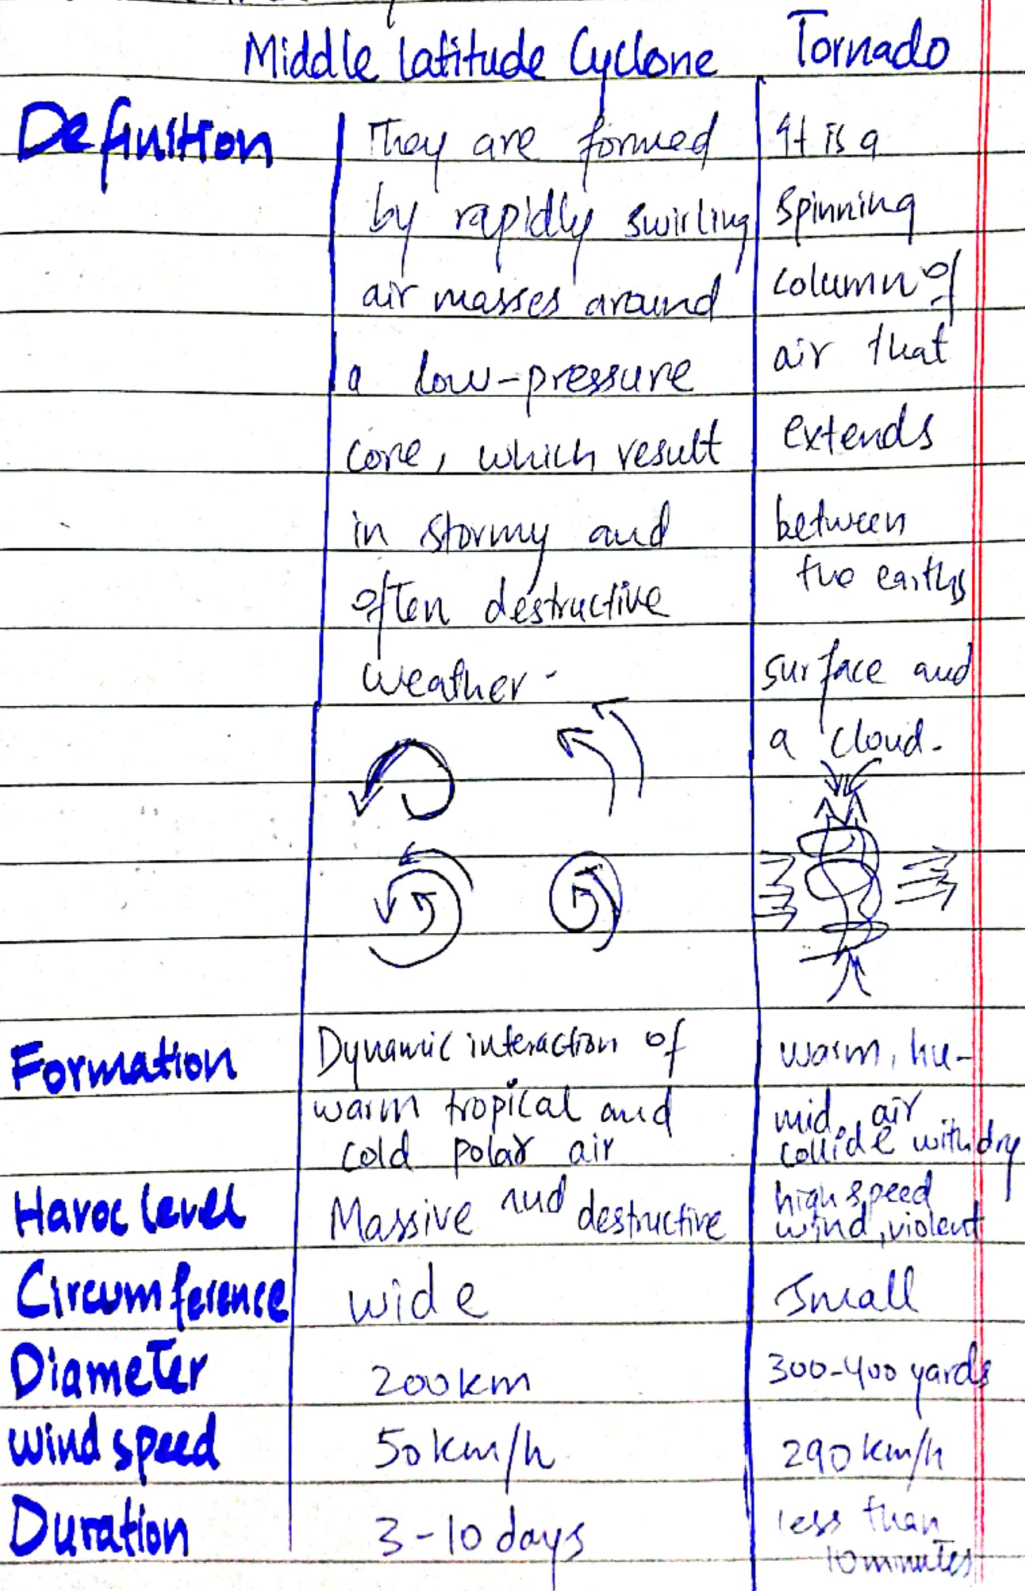 Middle latitude Cyclone Tornado
Definition
They are formed
by rapidly swirling
air masses around
a low-pressure
core, which result
in stormy and
often destructive
weather.
It is a
spinning
column of
air that
extends
between
the earths
surface and
a cloud.
Formation
Dynamic interaction of
warm tropical and
cold polar air
warm, hu-
mid, air
collide with dry
Havoc level
Massive and destructive
high speed
wind, violent
Circumference wide Small
Diameter 200km 300-400 yards
Wind speed 50km/h 290km/h
Duration 3-10 days
less than
10 minutes